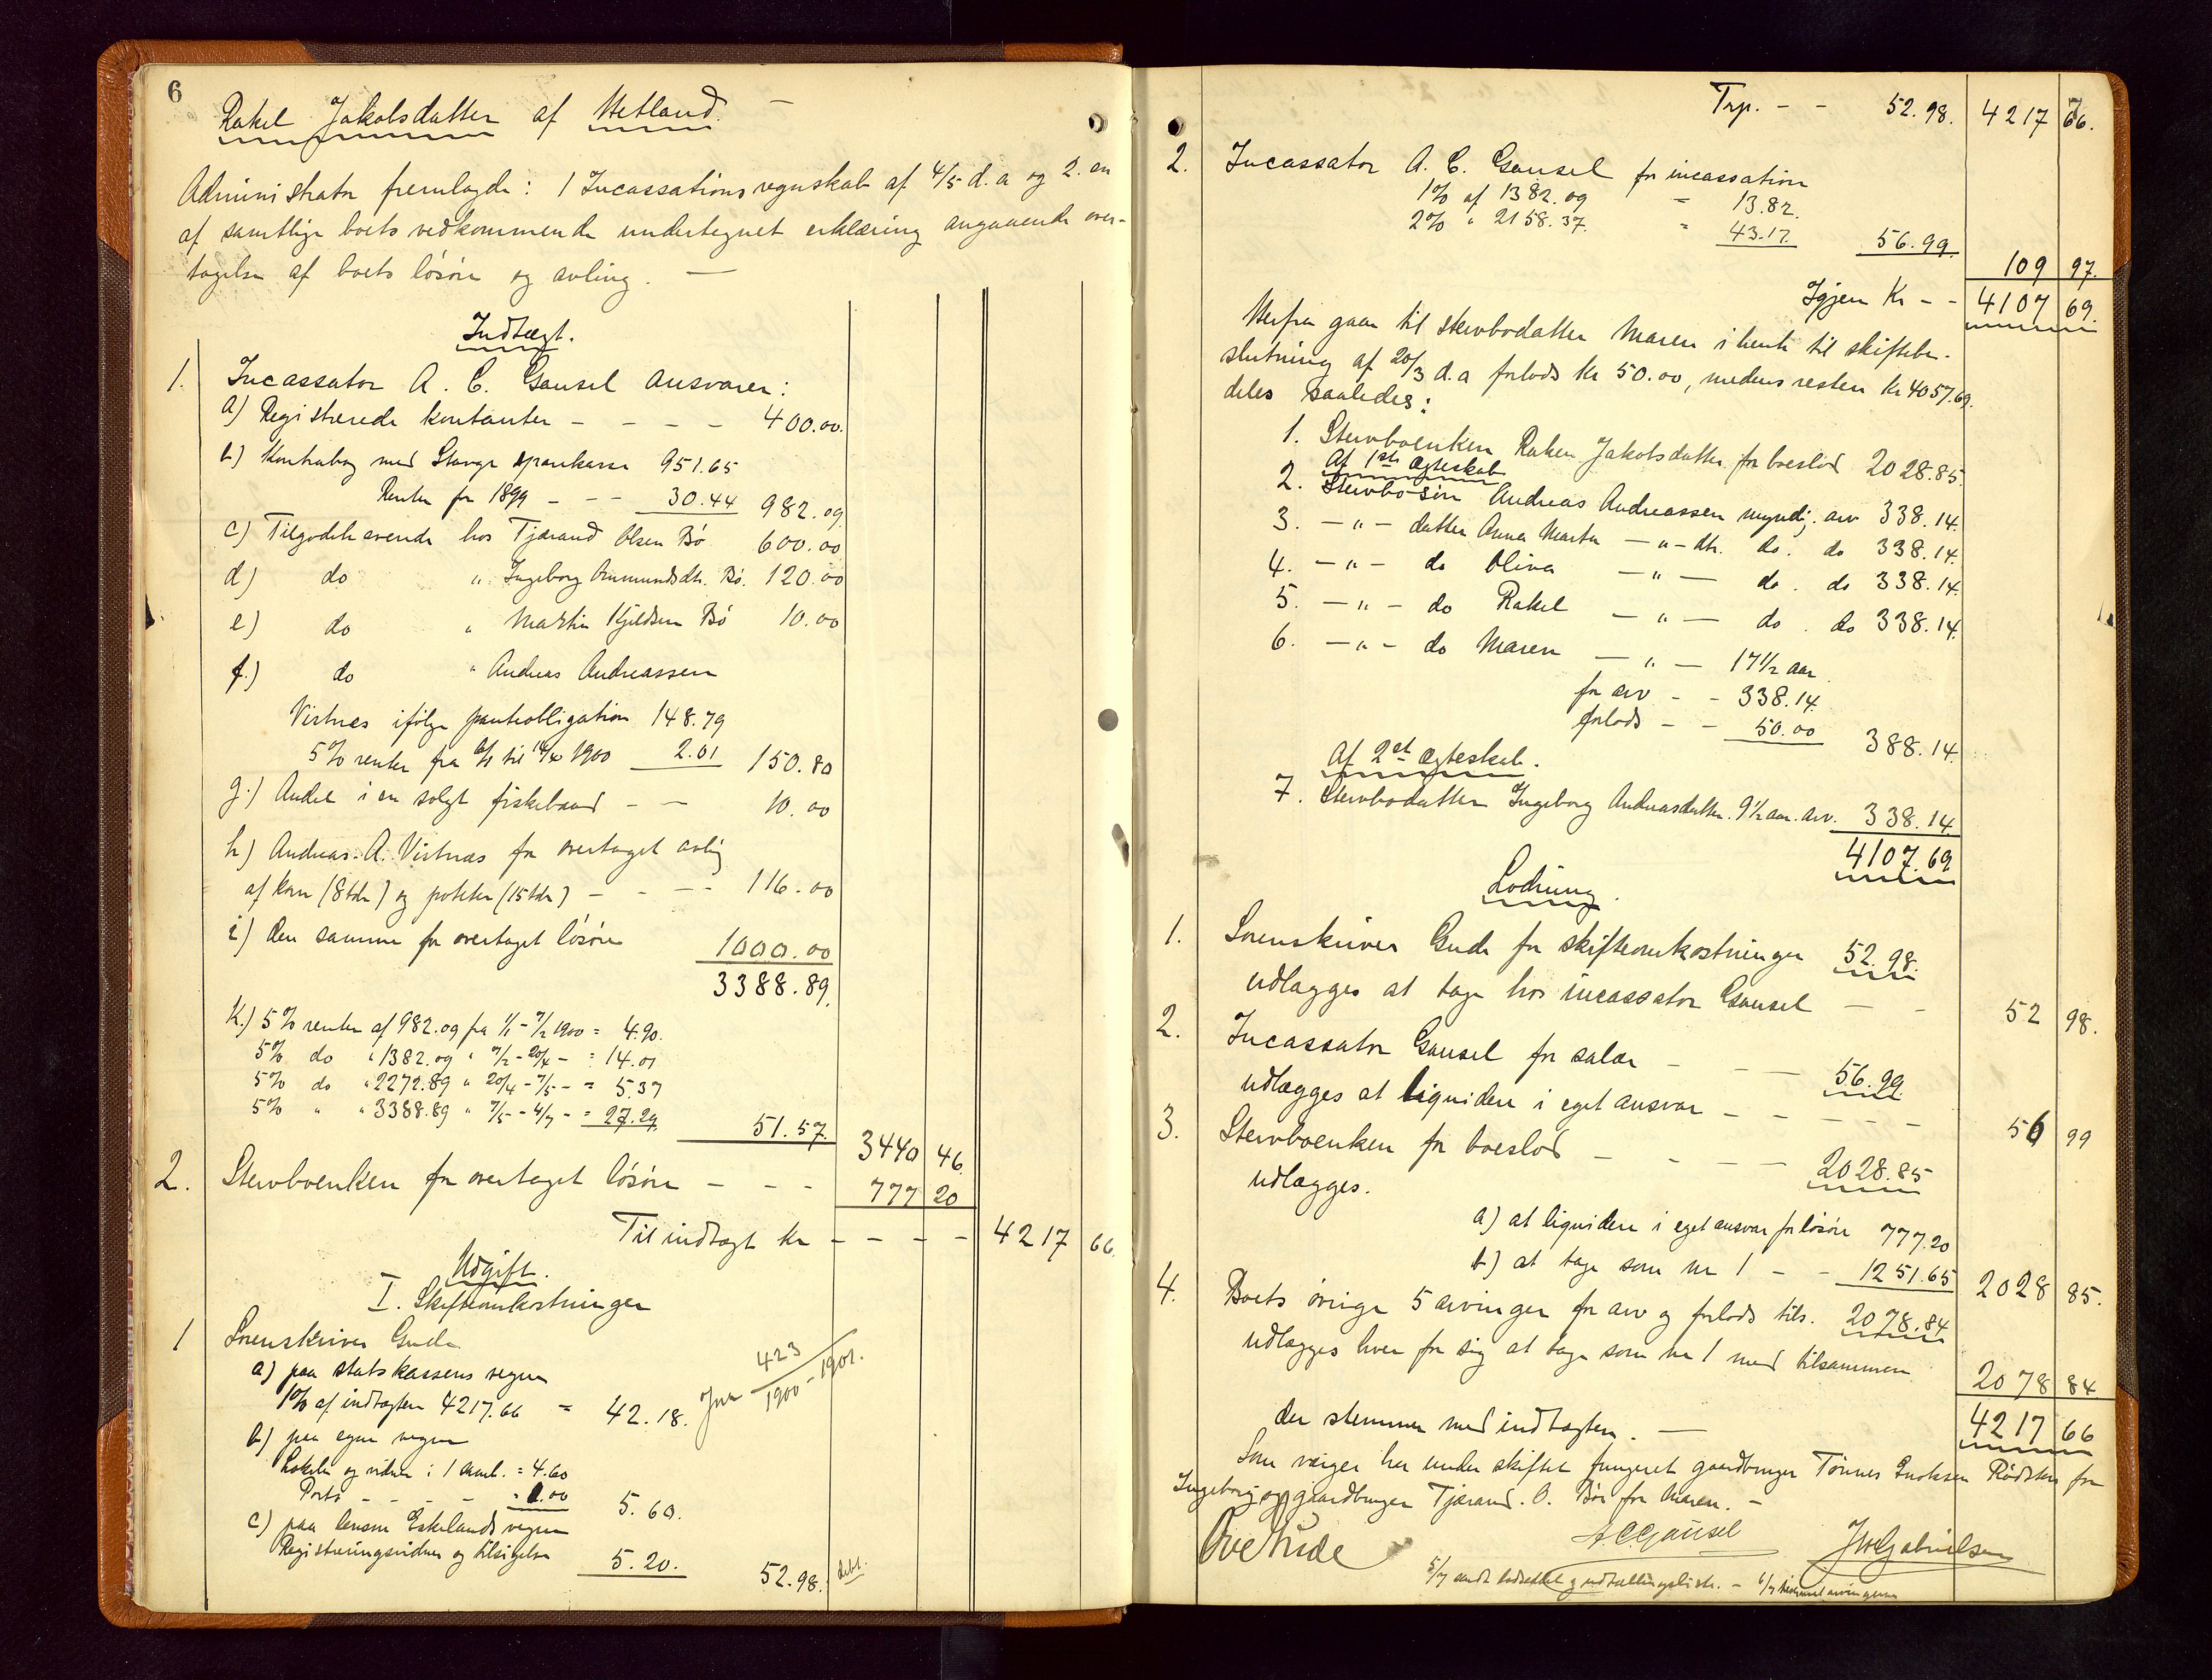 6
Rakel Jakobsdatter af Hetland. —
Administrator fremlagde: 1 Incassationsregnskab af 4/5 d.a og 2. en
af samtlige boets vedkommende undertegnet erklæring angaaende over-
tagelse af boets løsøre og avling. —
Indtægt.
1. Incassator A. C. Gausel ansvarer:
a) Registrerede kontanter - - - - 400.00.
b) Kontrabog med Stavgr sparekasse 951.65
Renter for 1899 - - - 30.44 982.09
c) Tilgodehavende hos Tjærand Olsen Bø 600.00
d) do " Ingeborg Ommundsdtr. Bø. 120.00
e) do " Martin Kjeldsen Bø 10.00
f.) do " Andreas Andreassen
Virtnes ifølge panteobligation 148.79
5% renter fra 1/1 til 1900 2.01 150.80
g.) Andel i en solgt fiskebaad - - 10.00
h) Andreas. A. Virtnæs for overtaget avlig
af korn (8 tdr) og poteter (15 tdr) - - - - 116.00
i) den samme for overtaget løsøre 1000.00
3388.89.
K.) 5% renter af 982.09 fra 1/1 - 7/2 1900 = 4.90.
5% do " 1382.09 " 7/2 - 20/4 - = 14.01
5% do " 2272.89 " 20/4 - 7/5 - = 5.37
5% " " 3388.89 " 7/5 - 4/7 - = 27.29 51.57. 3440 46.
2. Stervboenken for overtaget løsøre - - - 777 20
Til indtægt kr - - - - 4217 66.
Udgift.
I. Skifteomkostninger
1 Sorenskriver Gude
a) paa statskassens vegne
1% af indtægten 4217.66 = 42.18.
Jnr 423/1900-1901.
b) paa egne vegne
Lokale og vidner i 1 saml. = 4.60
Porto - - - - = 1.00 5.60.
c) paa lensm Eskelands vegne
Registreringsvidner og tilsigelse 5.20. 52.98. debt.
Trp. - - 52.98. 4217 66.
2. Incassator A. C. Gausel for incassation
1% af 1382.09 = 13.82.
2% " 2158.37. = 43.17. 56.99. 109 97.
Igjen Kr - - 4107 69.
Herfra gaar til stervbodatter Maren i henh til skiftebe-
slutning af 20/3 d.a forlods kr 50.00, medens resten kr 4057.69.
deles saaledes:
1. Stervboenken Raken Jakobsdatter for boeslod 2028.85.
Af 1ste ægteskab
2. Stervbo-søn Andreas Andreassen myndig. arv 338.14.
3. - " - datter Anna Marta - " - dtr. do. do 338.14.
4. - " - do Oliva - " - do. do 338.14.
5. - " - do Rakel - " - do. do 338.14.
6. - " - do Maren - " - 17 1/2 aar
for arv - - 338.14.
forlods - - 50.00 388.14.
Af 2et ægteskab.
7. Stervbodatter Ingeborg Andreasdatter. 9 1/2 aar. arv. 338.14.
4107.69.
Lodning.
1. Sorenskriver Gude for skifteomkostninger 52.98.
udlægges at tage hos incassator Gausel - - 52 98.
2. Incassator Gausel for salær - - - 56.99.
udlægges at liquidere i eget ansvar - - - - 56 99
3. Stervboenken for boeslod - - - - 2028.85
udlægges.
a) at liquidere i eget ansvar for løsøre 777.20
b) at tage som nr 1 - - 1251.65 2028 85.
4. Boets øvrige 5 arvinger for arv og forlods tils. 2078.84
udlægges hver for sig at tage som nr 1 med tilsammen 2078 84
der stemmer med indtægten. — 4217 66
Som værger har under skiftet fungeret gaardbruger Tønnes Rødster for
Ingeborg og gaardbruger Tjærand. O. Bø for Maren. -
Ove Gude A C Gausel J W Gabrielsen
5/7 sendt lodseddel og udtællingsliste. - 6/7